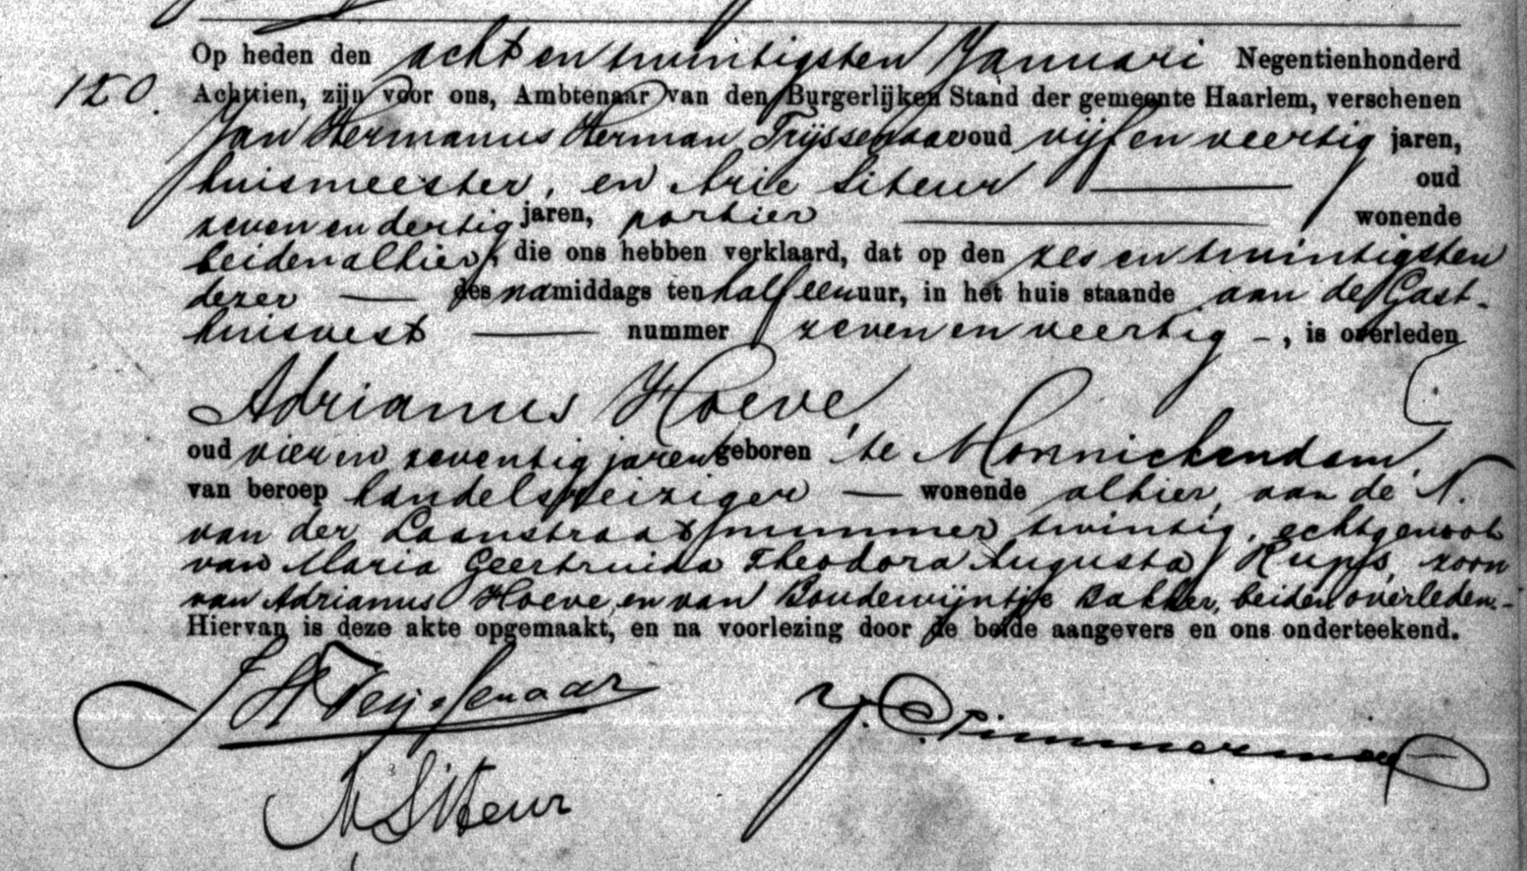 Op heden den acht en twintigsten Januari Negentienhonderd
120. Achttien, zijn voor ons, Ambtenaar van den Burgerlijken Stand der gemeente Haarlem, verschenen
Jan Hermanus Herman Trijssenaar oud vijf en veertig jaren,
huismeester, en Arie Siteur oud
zeven en dertig jaren, portier wonende
beiden alhier, die ons hebben verklaard, dat op den zes en twintigsten
dezer des namiddags ten half een uur, in het huis staande aan de Gast-
huisvest nummer zeven en veertig, is overleden
Adrianus Hoeve,
oud vier en zeventig jaren geboren te Monnickendam,
van beroep handelsreiziger wonende alhier, aan de N.
van der Laanstraat nummer twintig, echtgenoot
van Maria Geertruida Theodora Augusta Kupfs, zoon
van Adrianus Hoeve, en van Boudewijntje Bakker, beiden overleden.
Hiervan is deze akte opgemaakt, en na voorlezing door de beide aangevers en ons onderteekend.
A Siteur